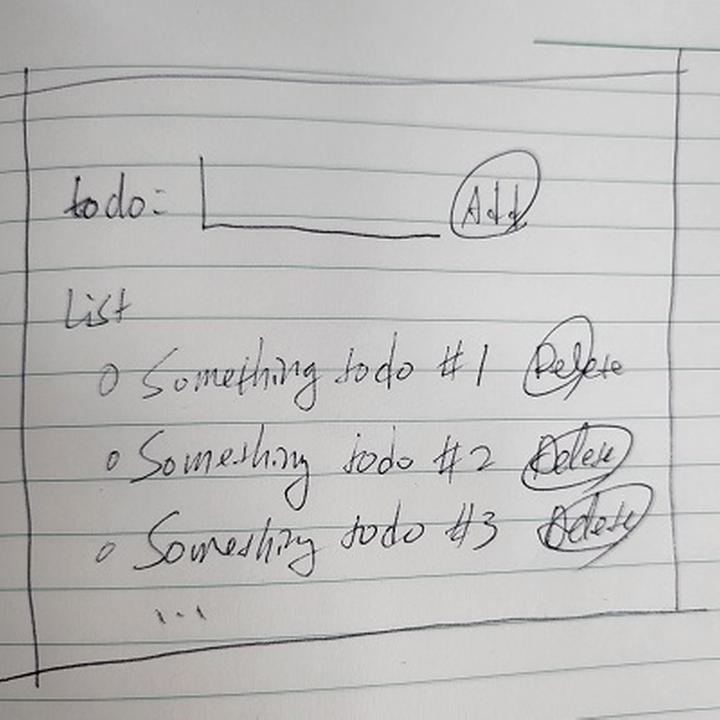 todo: Add
List
Something todo #1 Delete
Something todo #2 Delete
Something todo #3 Delete
...